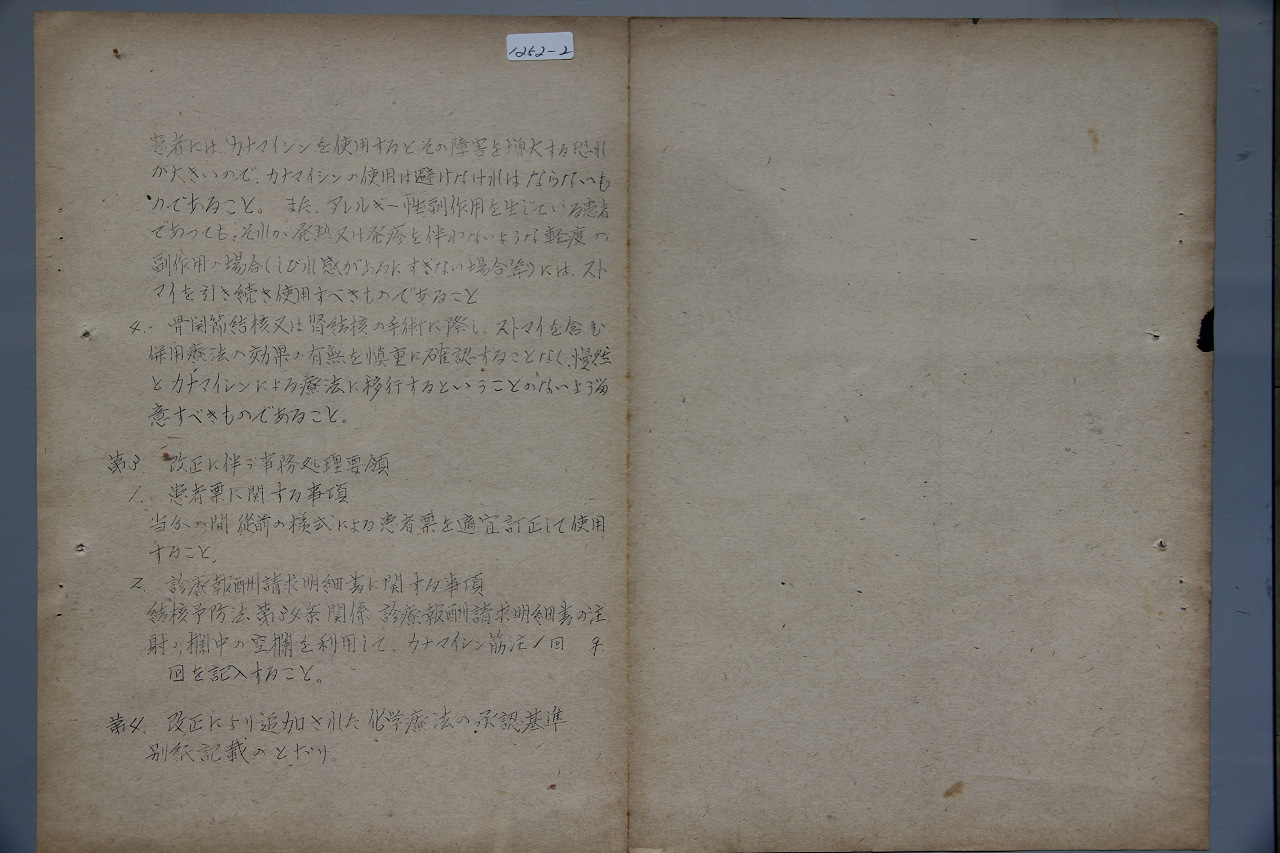 1252-2
患者には、カナマイシンを使用するとその障害を増大する恐れ
が大きいので、カナマイシンの使用は避けなければならないも
のであること。また、アレルギー性副作用を生じている患者
であっても、それが発熱又は発疹を伴わないような軽度の
副作用の場合(しびれ感があるにすぎない場合等)には、スト
マイを引き続き使用すべきものであること
4. 骨関節結核又は腎結核の手術に際し、ストマイを含む
併用療法の効果の有無を慎重に確認することなく、慢然
とカナマイシンによる療法に移行するということのないよう留
意すべきものであること。
第3. 改正に伴う事務処理要領
1. 患者票に関する事項
当分の間従前の様式による患者票を適宜訂正して使用
すること。
2. 診療報酬請求明細書に関する事項
結核予防法第34条関係 診療報酬請求明細書の注
射の欄中の空欄を利用して、カナマイシン筋注1回 g.
回を記入すること。
第4. 改正により追加された化学療法の承認基準
別紙記載のとおり。